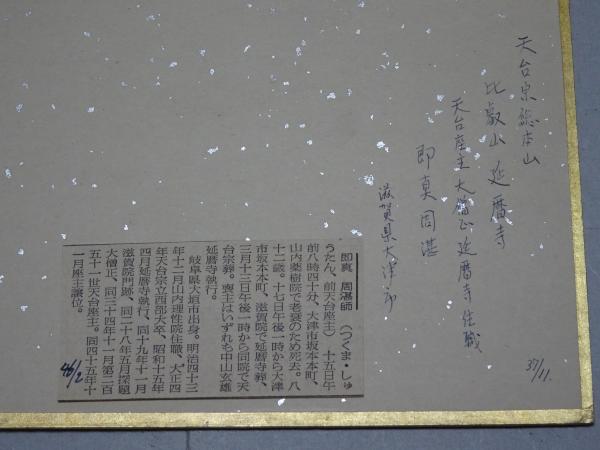 天台宗総本山
比叡山 延暦寺
天台座主大僧正延暦寺住職
即真周湛
滋賀県大津市
37/11.
即真 周湛師 (つくま・しゅ
うたん、前天台座主) 十五日午
前八時四十分、大津市坂本本町、
山内薬樹院で老衰のため死去。八
十二歳。十七日午後一時から大津
市坂本本町、滋賀院で延暦寺葬、
三月十三日午後一時から同院で天
台宗葬。喪主はいずれも中山玄雄
延暦寺執行。
岐阜県大垣市出身。明治四十三
年十二月山内理性院住職、大正四
年天台宗立西部大卒、昭和十五年
四月延暦寺執行、同十九年十一月
滋賀院門跡、同二十八年五月探題
大僧正、同三十四年十一月第二百
五十一世天台座主。同四十五年十
一月座主譲位。
46/2